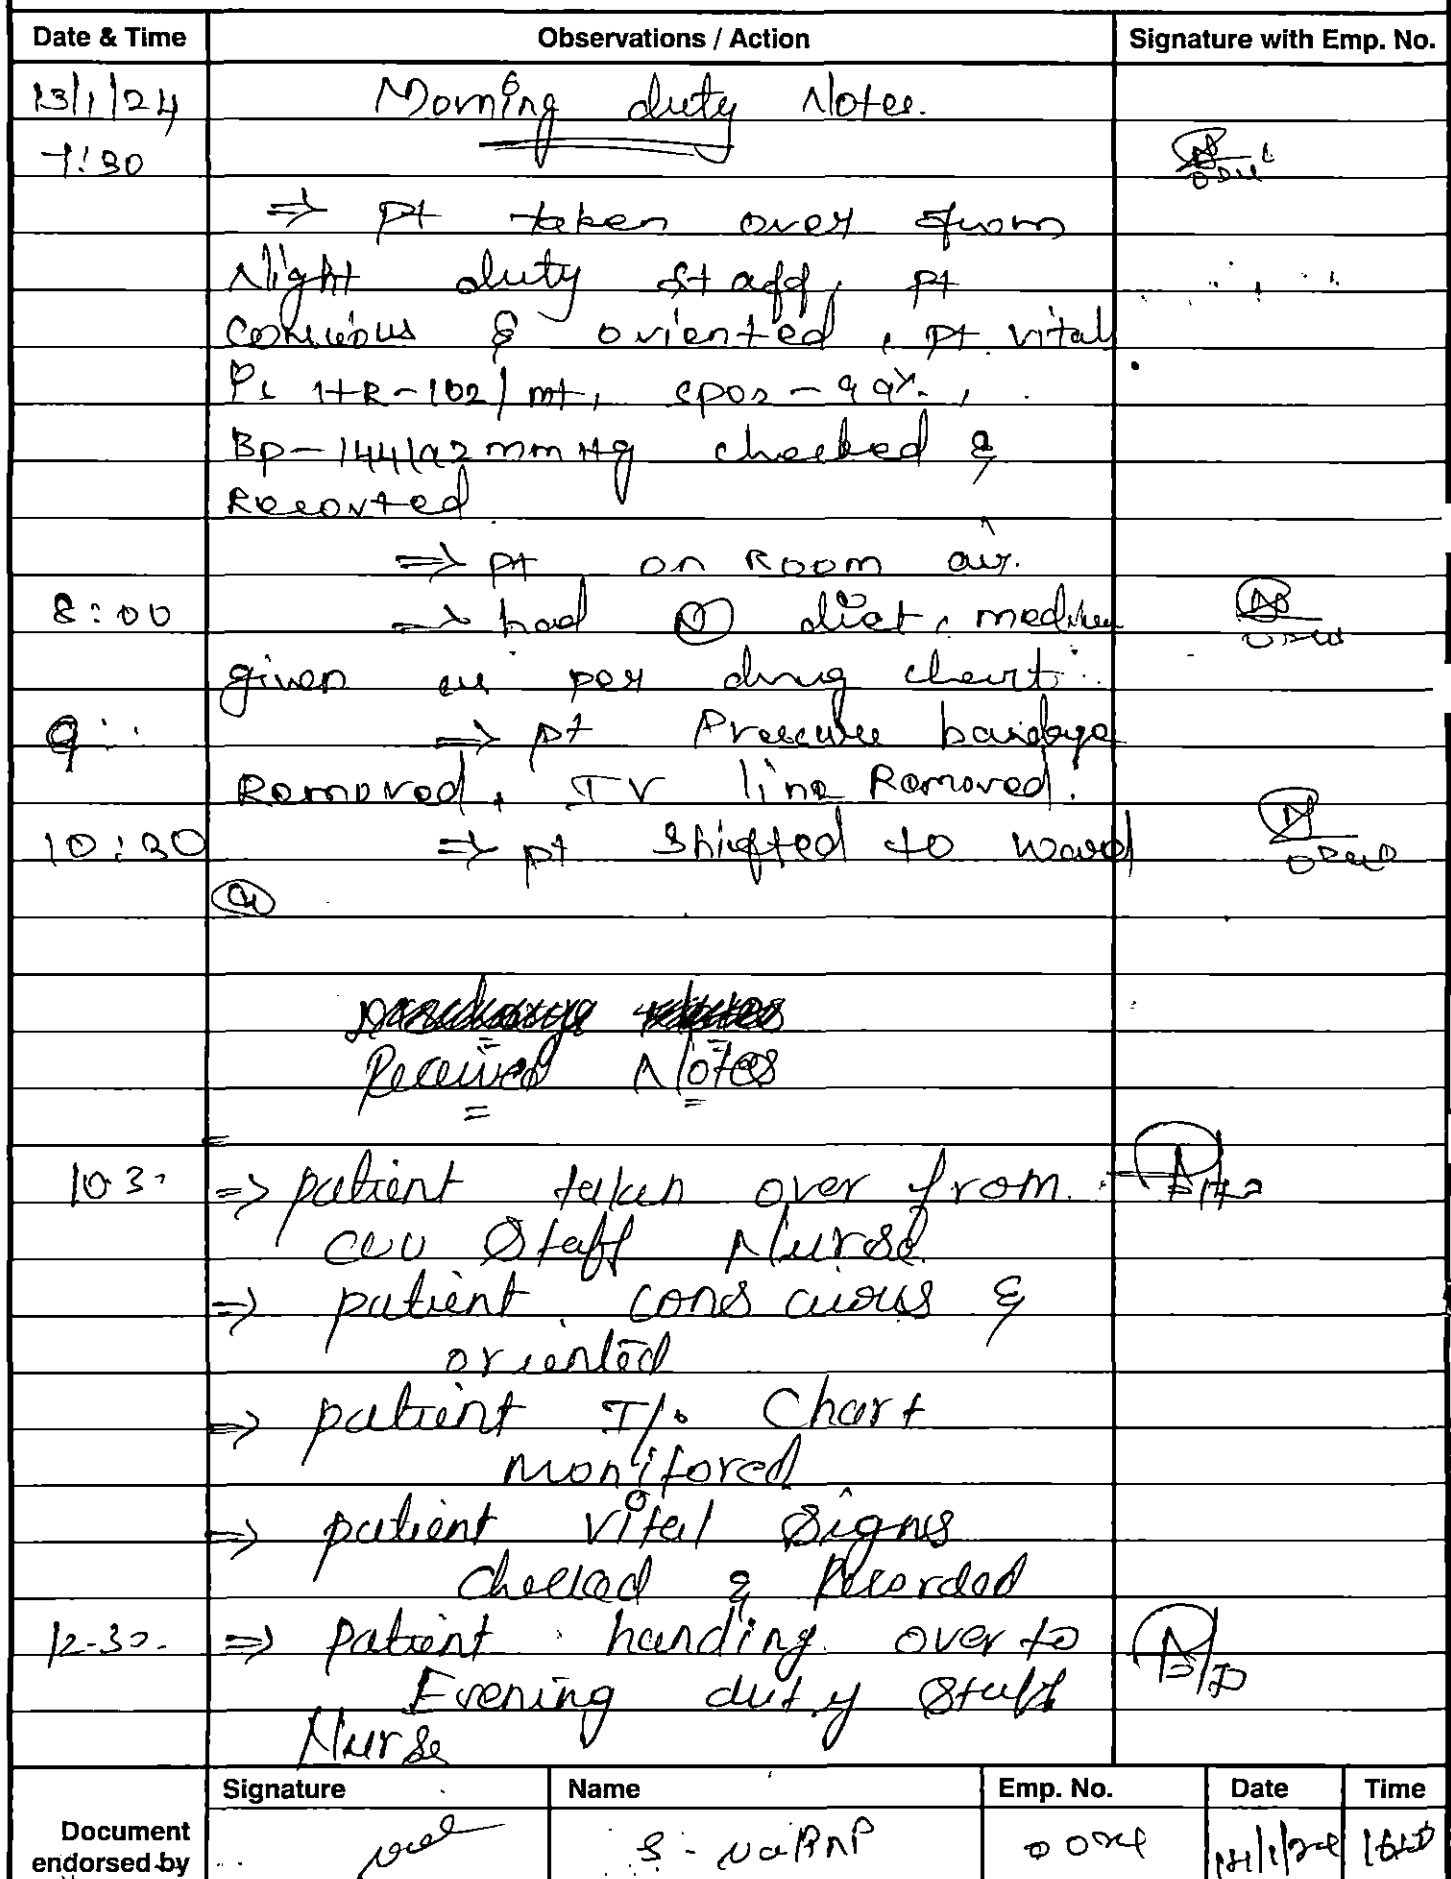 Date & Time Observations / Action Signature with Emp. No.
13/1/24 Morning duty Notes.
7:30
⇒ pt taken over from
Night duty staff, pt
conscious & oriented, pt vital
HR-102/mt, SPO2-99%,
BP-144/92mmHg checked &
Recorted
⇒ pt on Room air.
8:00 ⇒ had (N) diet, medicine
given as per drug chart.
9 ⇒ pt Pressure bandage
Removed, IV line Removed.
10:30 ⇒ pt Shifted to ward
Received Notes
10.30 ⇒ patient taken over from
CCU Staff Nurse
⇒ patient conscious &
oriented
⇒ patient I/o Chart
monitored
⇒ patient vital Signs
checked & Recorded
12-30- ⇒ patient handing over to
Evening duty Staff
Nurse
Signature Name Emp. No. Date Time
Document
endorsed by